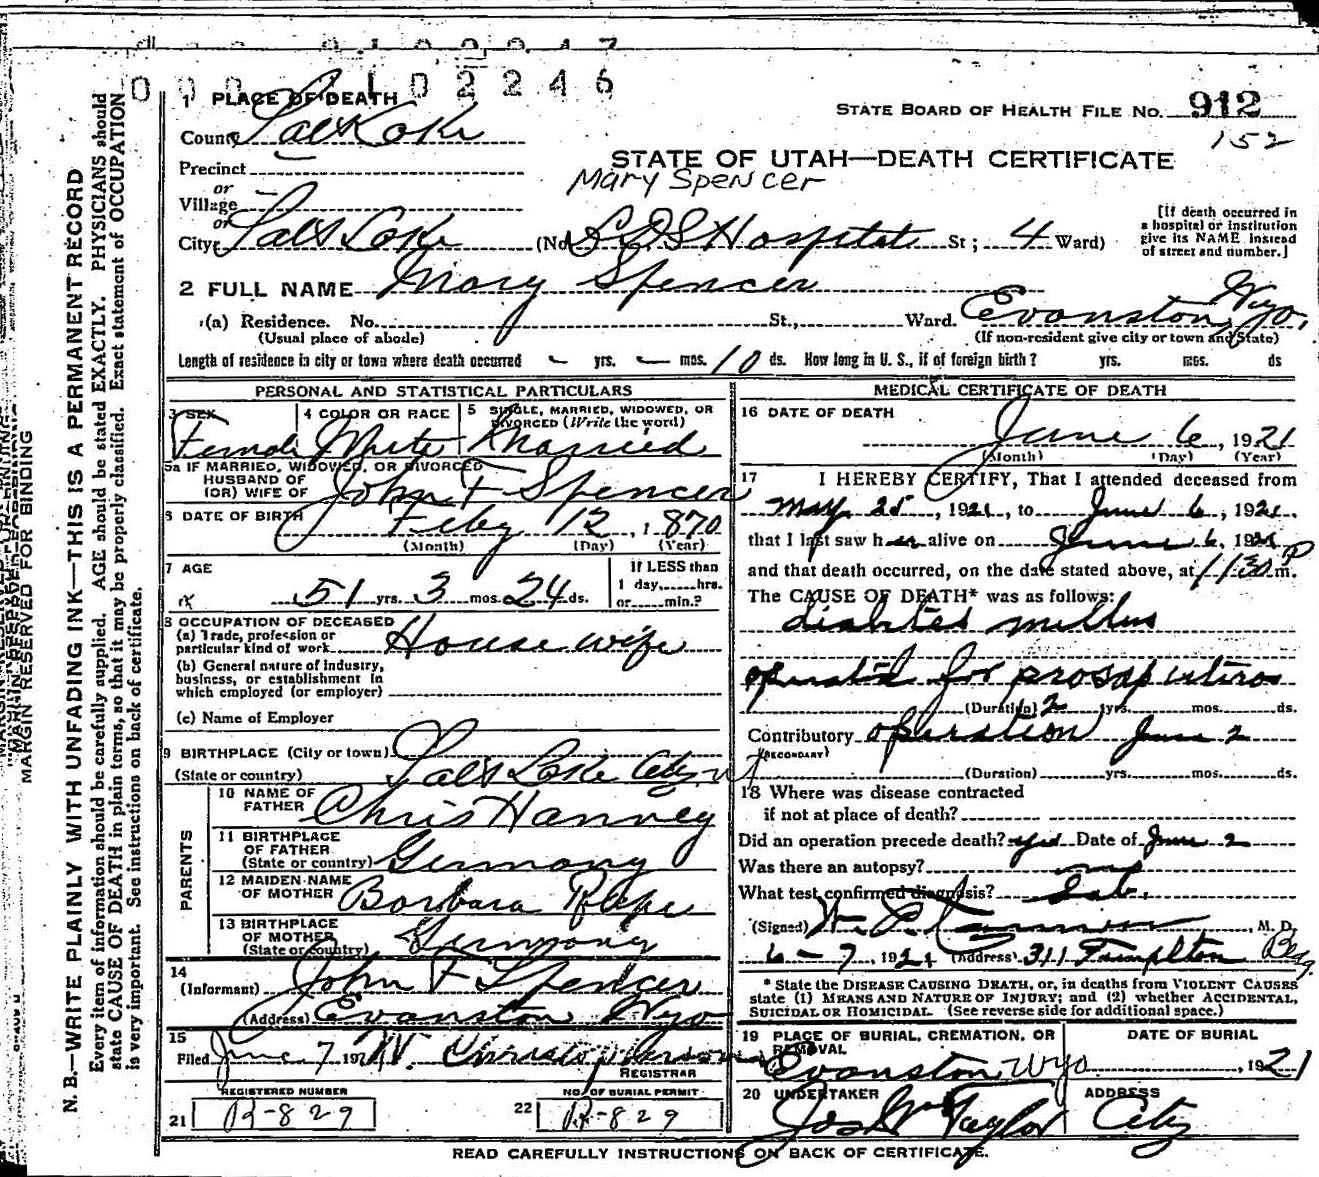 000 102246
1 PLACE OF DEATH
STATE BOARD OF HEALTH FILE No. 912
152
County Salt Lake
STATE OF UTAH—DEATH CERTIFICATE
Precinct
Mary Spencer
or
Village
or
City Salt Lake (No. LDS Hospital St ; 4 Ward)
[If death occurred in a hospital or institution give its NAME instead of street and number.]
2 FULL NAME Mary Spencer
(a) Residence. No. St., Ward. Evanston, Wyo.
(Usual place of abode) (If non-resident give city or town and State)
Length of residence in city or town where death occurred – yrs. – mos. 10 ds. How long in U. S., if of foreign birth? yrs. mos. ds
PERSONAL AND STATISTICAL PARTICULARS
3 SEX 4 COLOR OR RACE 5 SINGLE, MARRIED, WIDOWED, OR DIVORCED (Write the word)
Female White Married
5a IF MARRIED, WIDOWED, OR DIVORCED
HUSBAND OF
(OR) WIFE OF John F Spencer
6 DATE OF BIRTH Feby 12, 1870
(Month) (Day) (Year)
7 AGE
51 yrs. 3 mos. 24 ds.
If LESS than
1 day, hrs.
or min.?
8 OCCUPATION OF DECEASED
(a) Trade, profession or
particular kind of work House wife
(b) General nature of industry,
business, or establishment in
which employed (or employer)
(c) Name of Employer
9 BIRTHPLACE (City or town)
(State or country) Salt Lake City Ut
PARENTS
10 NAME OF
FATHER Chris Hanney
11 BIRTHPLACE
OF FATHER
(State or country) Germany
12 MAIDEN NAME
OF MOTHER Barbara
13 BIRTHPLACE
OF MOTHER
(State or country) Germany
14
(Informant) John F Spencer
(Address) Evanston Wyo
15
Filed June 7, 192 W. Christopherson
REGISTRAR
REGISTERED NUMBER NO. OF BURIAL PERMIT
21 R-829 22 R-829
MEDICAL CERTIFICATE OF DEATH
16 DATE OF DEATH
June 6, 1921
(Month) (Day) (Year)
17 I HEREBY CERTIFY, That I attended deceased from
May 25, 1921, to June 6, 1921,
that I last saw her alive on June 6, 1921
and that death occurred, on the date stated above, at 1130 P m.
The CAUSE OF DEATH* was as follows:
diabites mellus
operated for
(Duration) 2 yrs. mos. ds.
Contributory operation June 2
(SECONDARY)
(Duration) yrs. mos. ds.
18 Where was disease contracted
if not at place of death?
Did an operation precede death? yes Date of June 2
Was there an autopsy? no
What test confirmed diagnosis? Lab.
(Signed) M. D.
6-7, 1921 (Address) 311 Templton Bldg.
* State the DISEASE CAUSING DEATH, or, in deaths from VIOLENT CAUSES
state (1) MEANS AND NATURE OF INJURY; and (2) whether ACCIDENTAL,
SUICIDAL OR HOMICIDAL. (See reverse side for additional space.)
19 PLACE OF BURIAL, CREMATION, OR REMOVAL DATE OF BURIAL
Evanston, Wyo , 1921
20 UNDERTAKER ADDRESS
Jos Wm Taylor City
READ CAREFULLY INSTRUCTIONS ON BACK OF CERTIFICATE.
MARGIN RESERVED FOR BINDING
N. B.—WRITE PLAINLY WITH UNFADING INK—THIS IS A PERMANENT RECORD
Every item of information should be carefully supplied. AGE should be stated EXACTLY. PHYSICIANS should
state CAUSE OF DEATH in plain terms, so that it may be properly classified. Exact statement of OCCUPATION
is very important. See instructions on back of certificate.